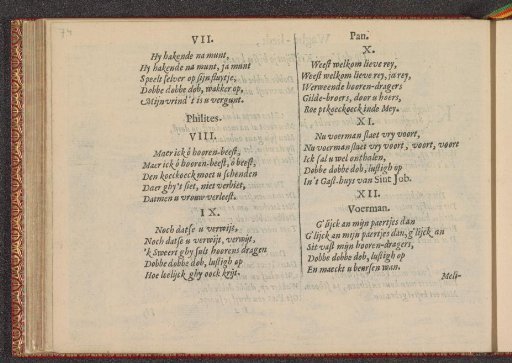 74
VII.
Hy hakende na munt,
Hy hakende na munt, ja munt
Speelt selver op sijn fluytje,
Dobbe dobbe dob, wakker op,
Mijn vrind 't is u vergunt.
Philites.
VIII.
Maer ick ô hooren-beest,
Maer ick ô hooren-beest, ô beest,
Den koeckoeck moet u schenden
Daer ghy't siet, niet verbiet,
Datmen u vrouw verleest.
IX.
Noch datse u verwijt,
Noch datse u verwijt, verwijt,
'k Sweert ghy suls hoorens dragen
Dobbe dobbe dob, lustigh op
Hoe leelijck ghy oock krijt.
Pan.
X.
Weest welkom lieve rey,
Weest welkom lieve rey, ja rey,
Verweende hooren-dragers
Gilde-broers, door u hoers,
Roept koeckoeck inde Mey.
XI.
Nu voerman slaet vry voort,
Nu voerman slaet vry voort, voort, voort
Ick sal u wel onthalen,
Dobbe dobbe dob, lustigh op
In't Gast-huys van Sint Job.
XII.
Voerman.
G'lijck an mijn paertjes dan
G'lijck an mijn paertjes dan, g'lijck an
Sit vast mijn hooren-dragers,
Dobbe dobbe dob, lustigh op
En maeckt u beursen wan.
Meli-